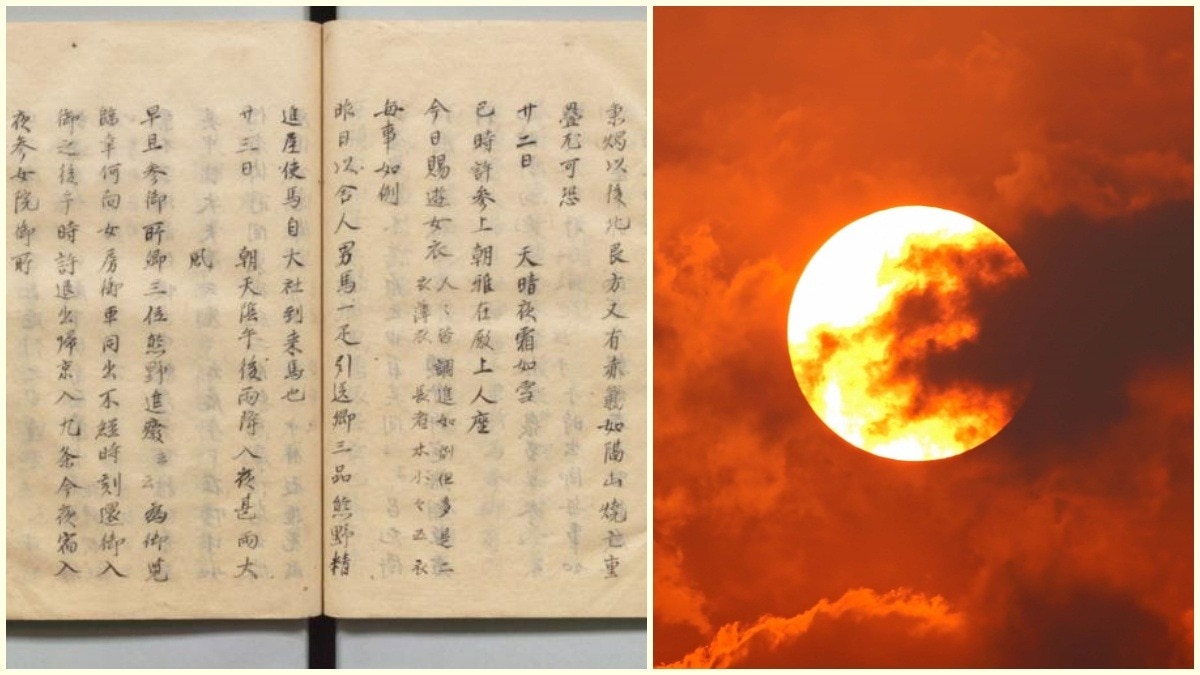 秉燭以後北艮方又有赤氣如隔山燒亡重
疊尤可恐
廿二日　天晴夜霜如雪
巳時許参上朝雅在殿上人座
今日賜遊女衣 人々皆調進如例但多是二
衣薄衣 長者 小々五衣
毎事如例
昨日以舎人男馬一疋引送卿三品熊野精
進屋使馬自大社到来馬也
廿三日　朝天陰午後雨降入夜甚雨大
風
早旦参御所卿三位熊野進發云々為御覧
臨幸何向女房御車同出不経時刻還御入
御之後午時許退出帰京入九条今夜宿入
夜参女院御所